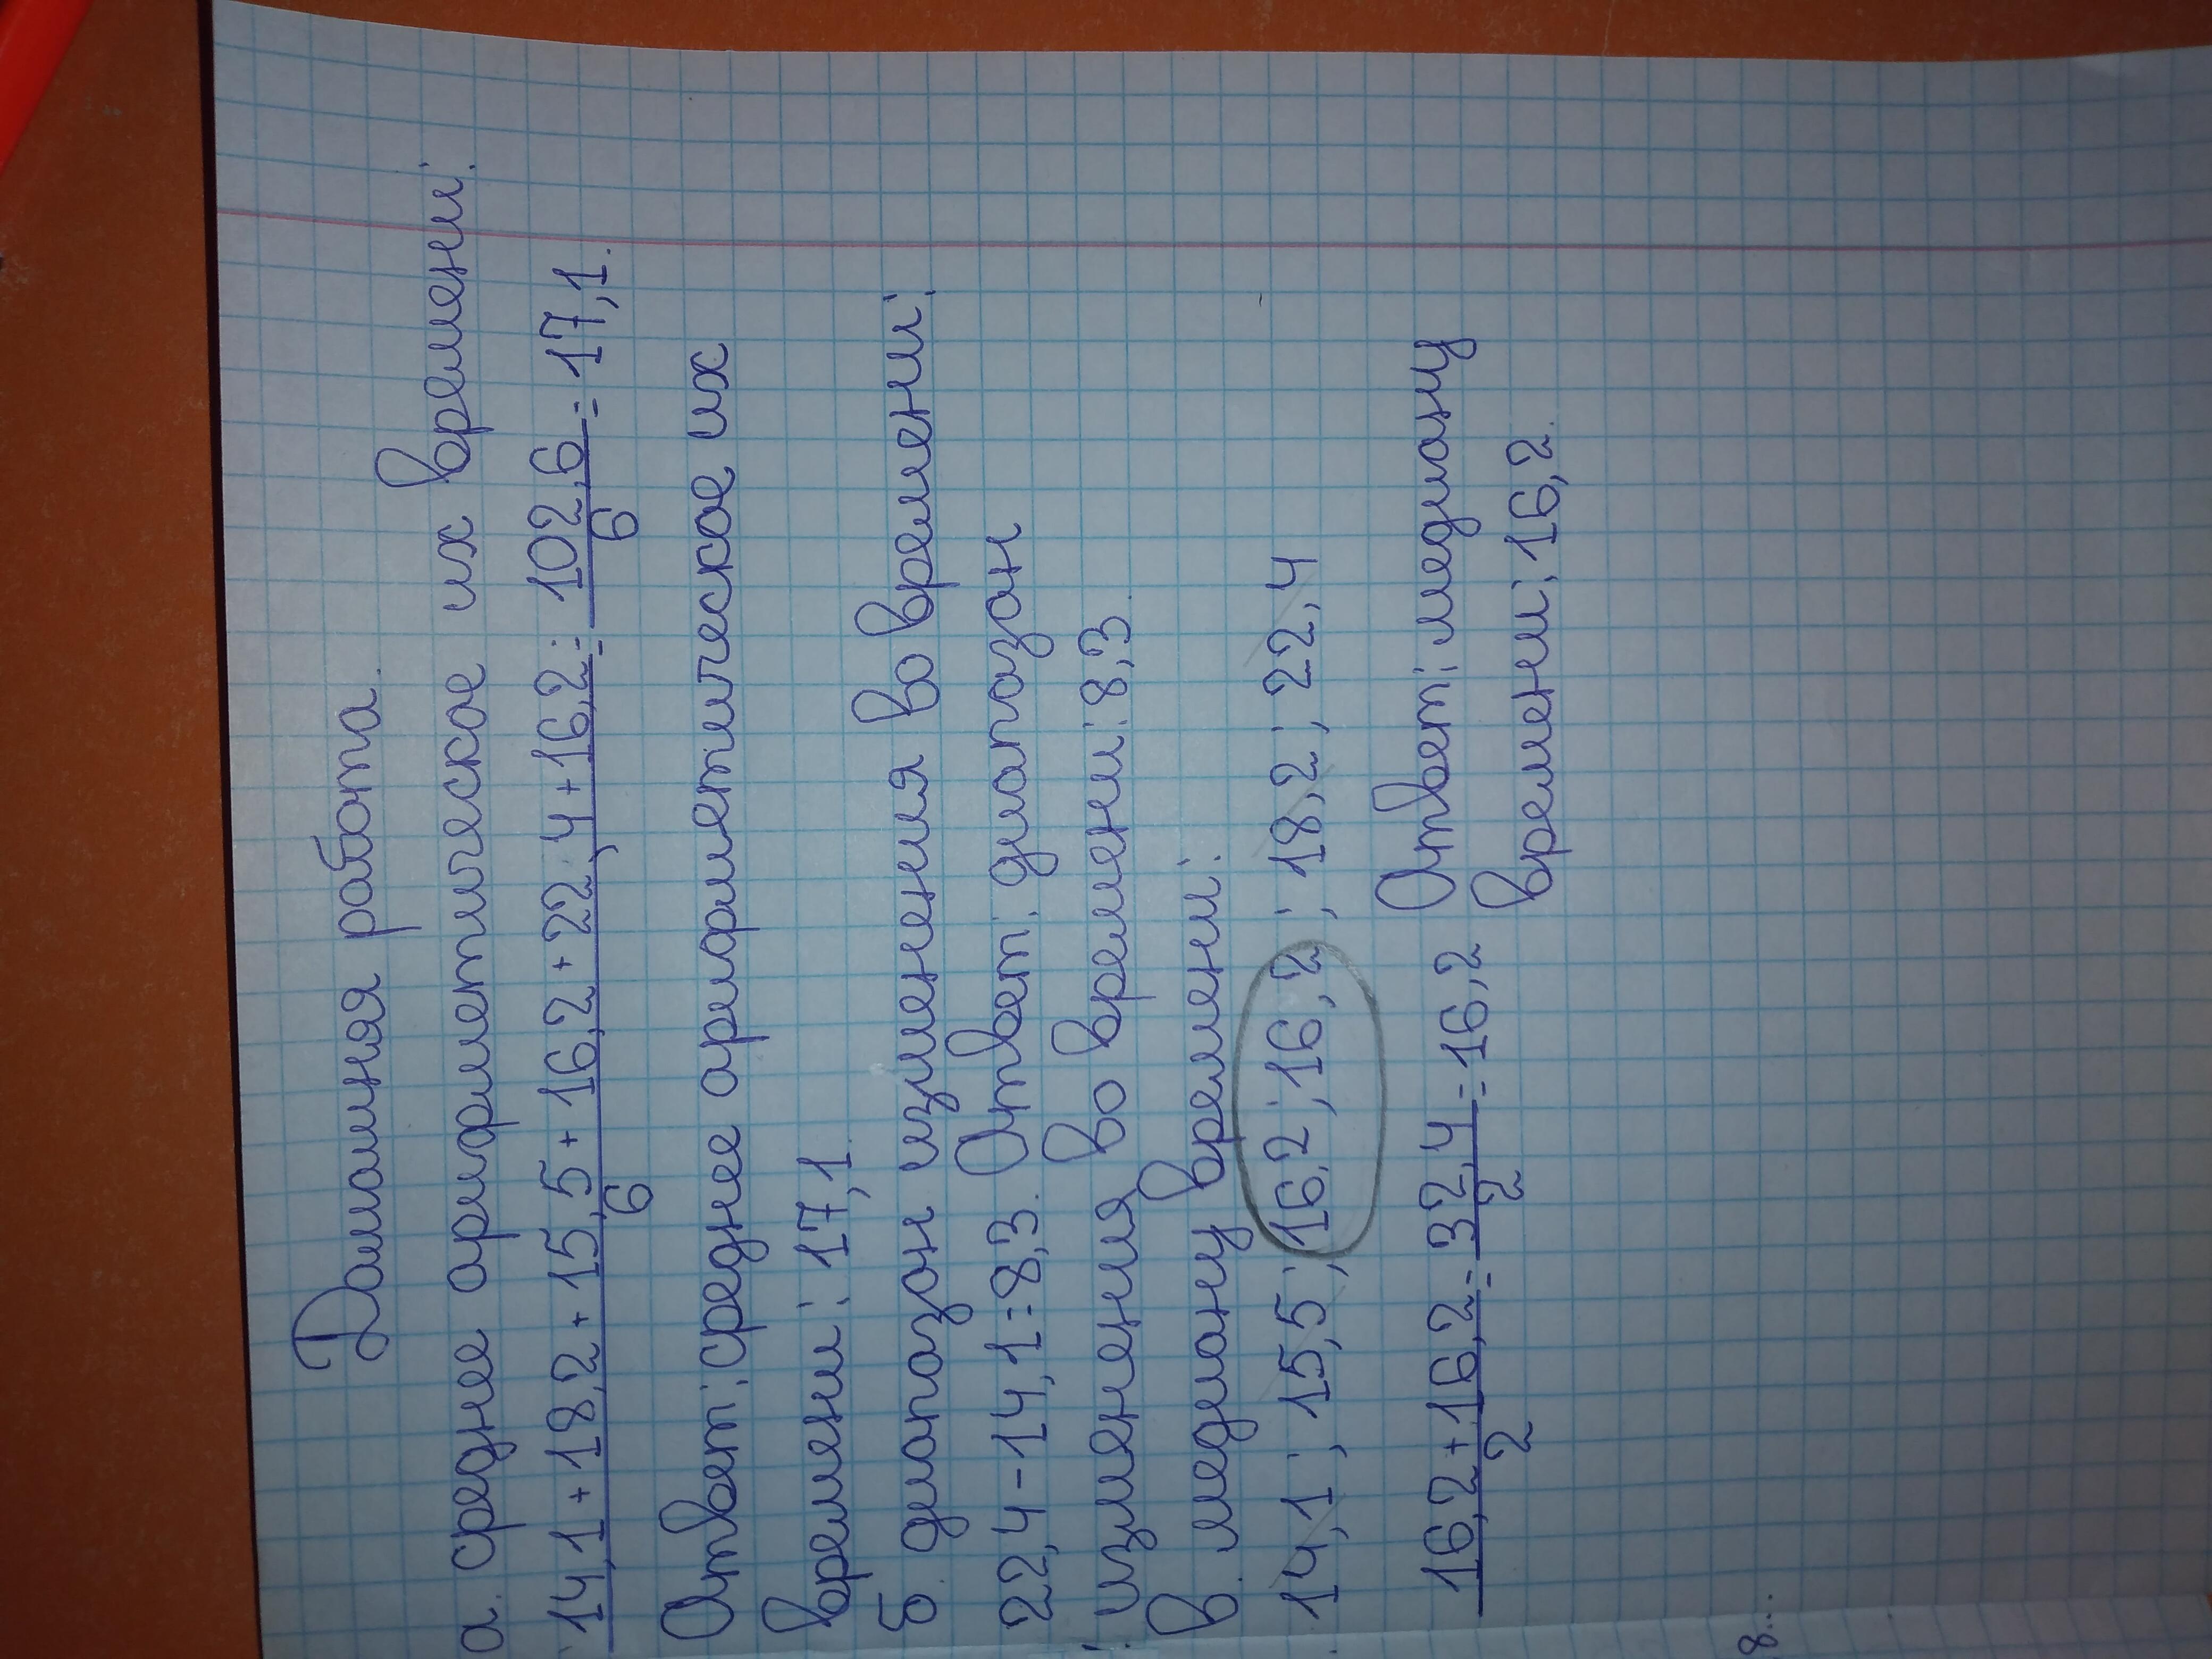 Домашняя работа.
а. среднее арифметическое их времени:
14,1+18,2+15,5+16,2+22,4+16,2 = 102,6 = 17,1.
6 6
Ответ: среднее арифметическое их
времени: 17,1.
б. диапазон изменения во времени:
22,4-14,1=8,3. Ответ: диапазон
изменения во времени: 8,3.
в. медиану времени:
14,1; 15,5; 16,2; 16,2; 18,2; 22,4
16,2+16,2 = 32,4 = 16,2 Ответ: медиану
2 2 времени: 16,2.
8...